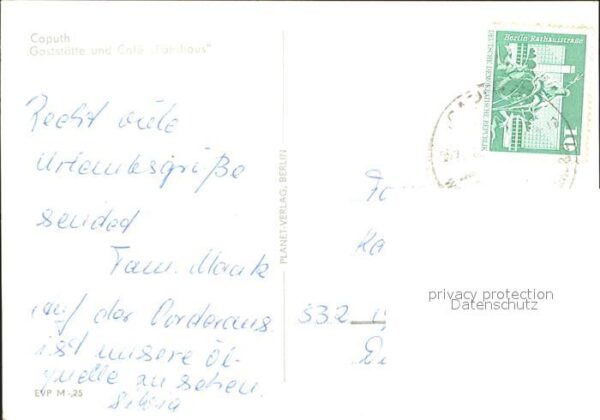 Caputh
Gaststätte und Café „Fährhaus"
Recht viele
Urlaubsgrüße
sended
Fam. Maak
auf der Vorderans
ist unsere Öl-
quelle zu sehen.
Silvia
EVP M -,25
PLANET-VERLAG, BERLIN
Berlin-Rathausstraße
DEUTSCHE DEMOKRATISCHE REPUBLIK
10
532
privacy protection
Datenschutz